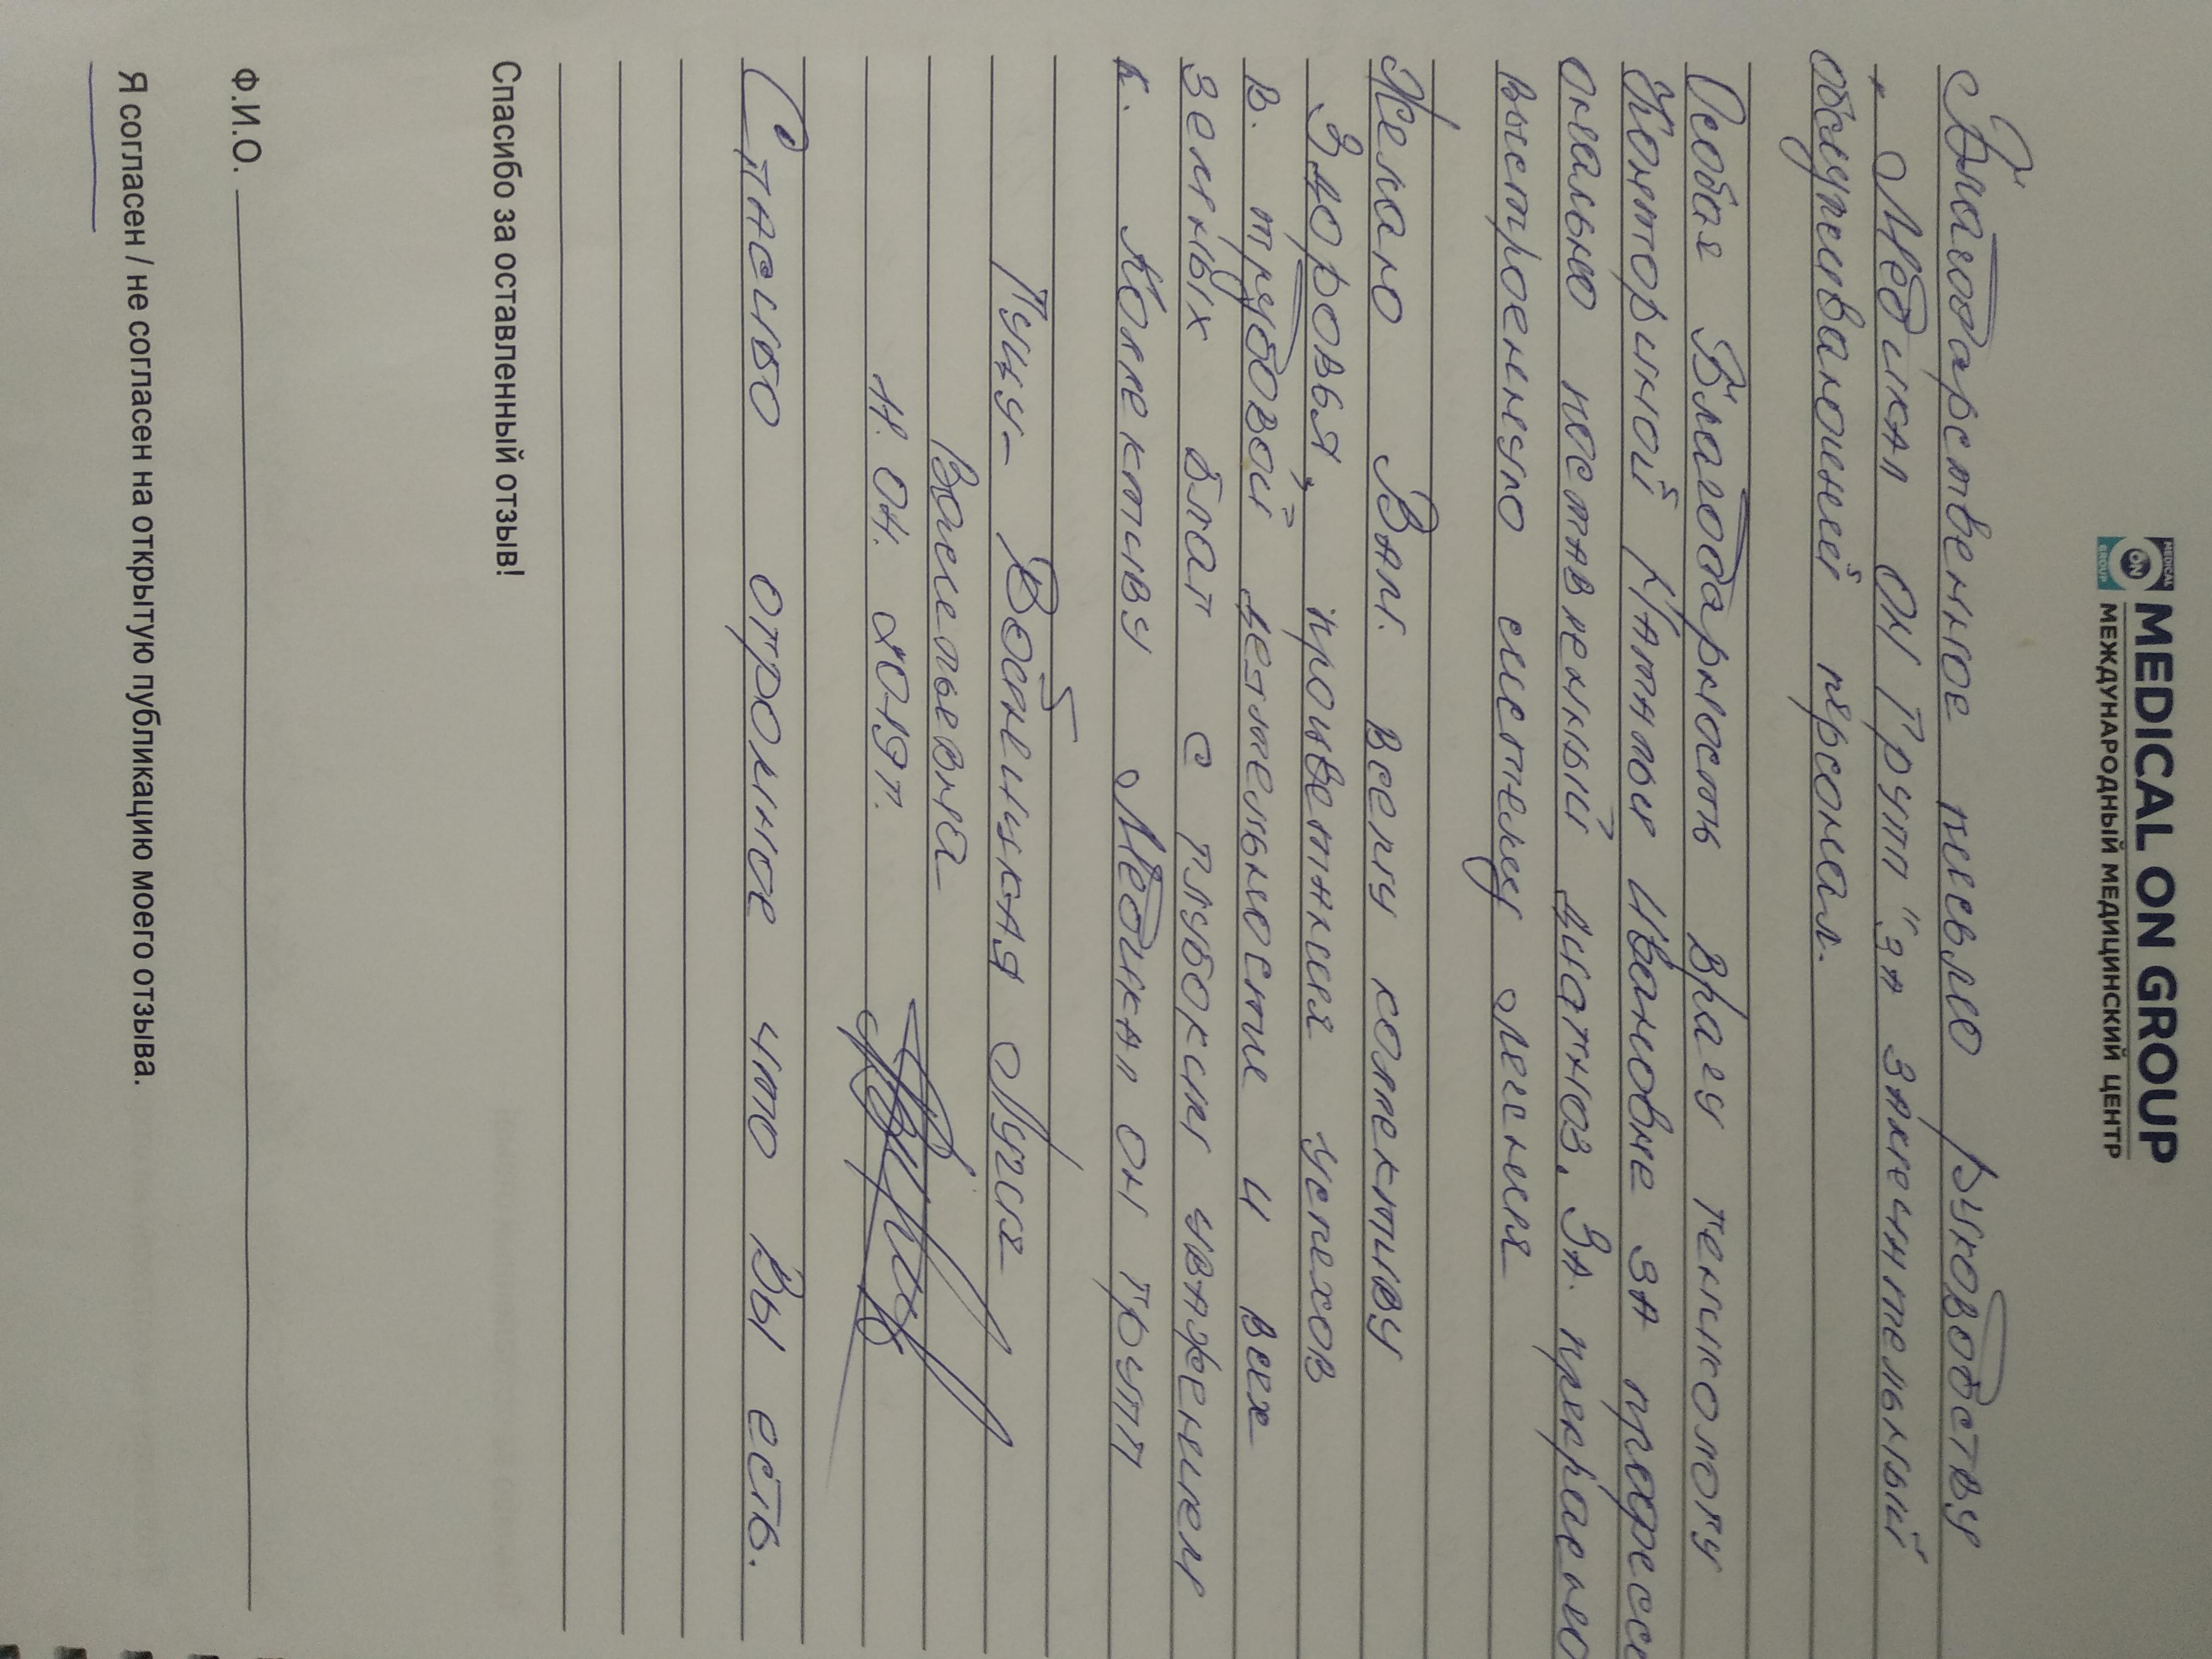 MEDICAL ON GROUP
МЕЖДУНАРОДНЫЙ МЕДИЦИНСКИЙ ЦЕНТР
MEDICAL
ON
GROUP
Благодарственное письмо руководству
"Медикал ОН Групп" за замечательный
обслуживающий персонал.
Особая Благодарность врачу геникологу
Конториной Наталье Ивановне за професси
онально поставленный диагноз. За прекрасную
выстроенную систему лечения
Желаю Вам. всему коллективу
Здоровья, процветания успехов
в. трудовой деятельности и всех
земных благ с глубоким уважением
к. Колективу Медикал он групп
Луиза
Васильевна
11. 04. 2019 г.
Спасибо огромное что Вы есть.
Спасибо за оставленный отзыв!
Ф.И.О.
Я согласен / не согласен на открытую публикацию моего отзыва.